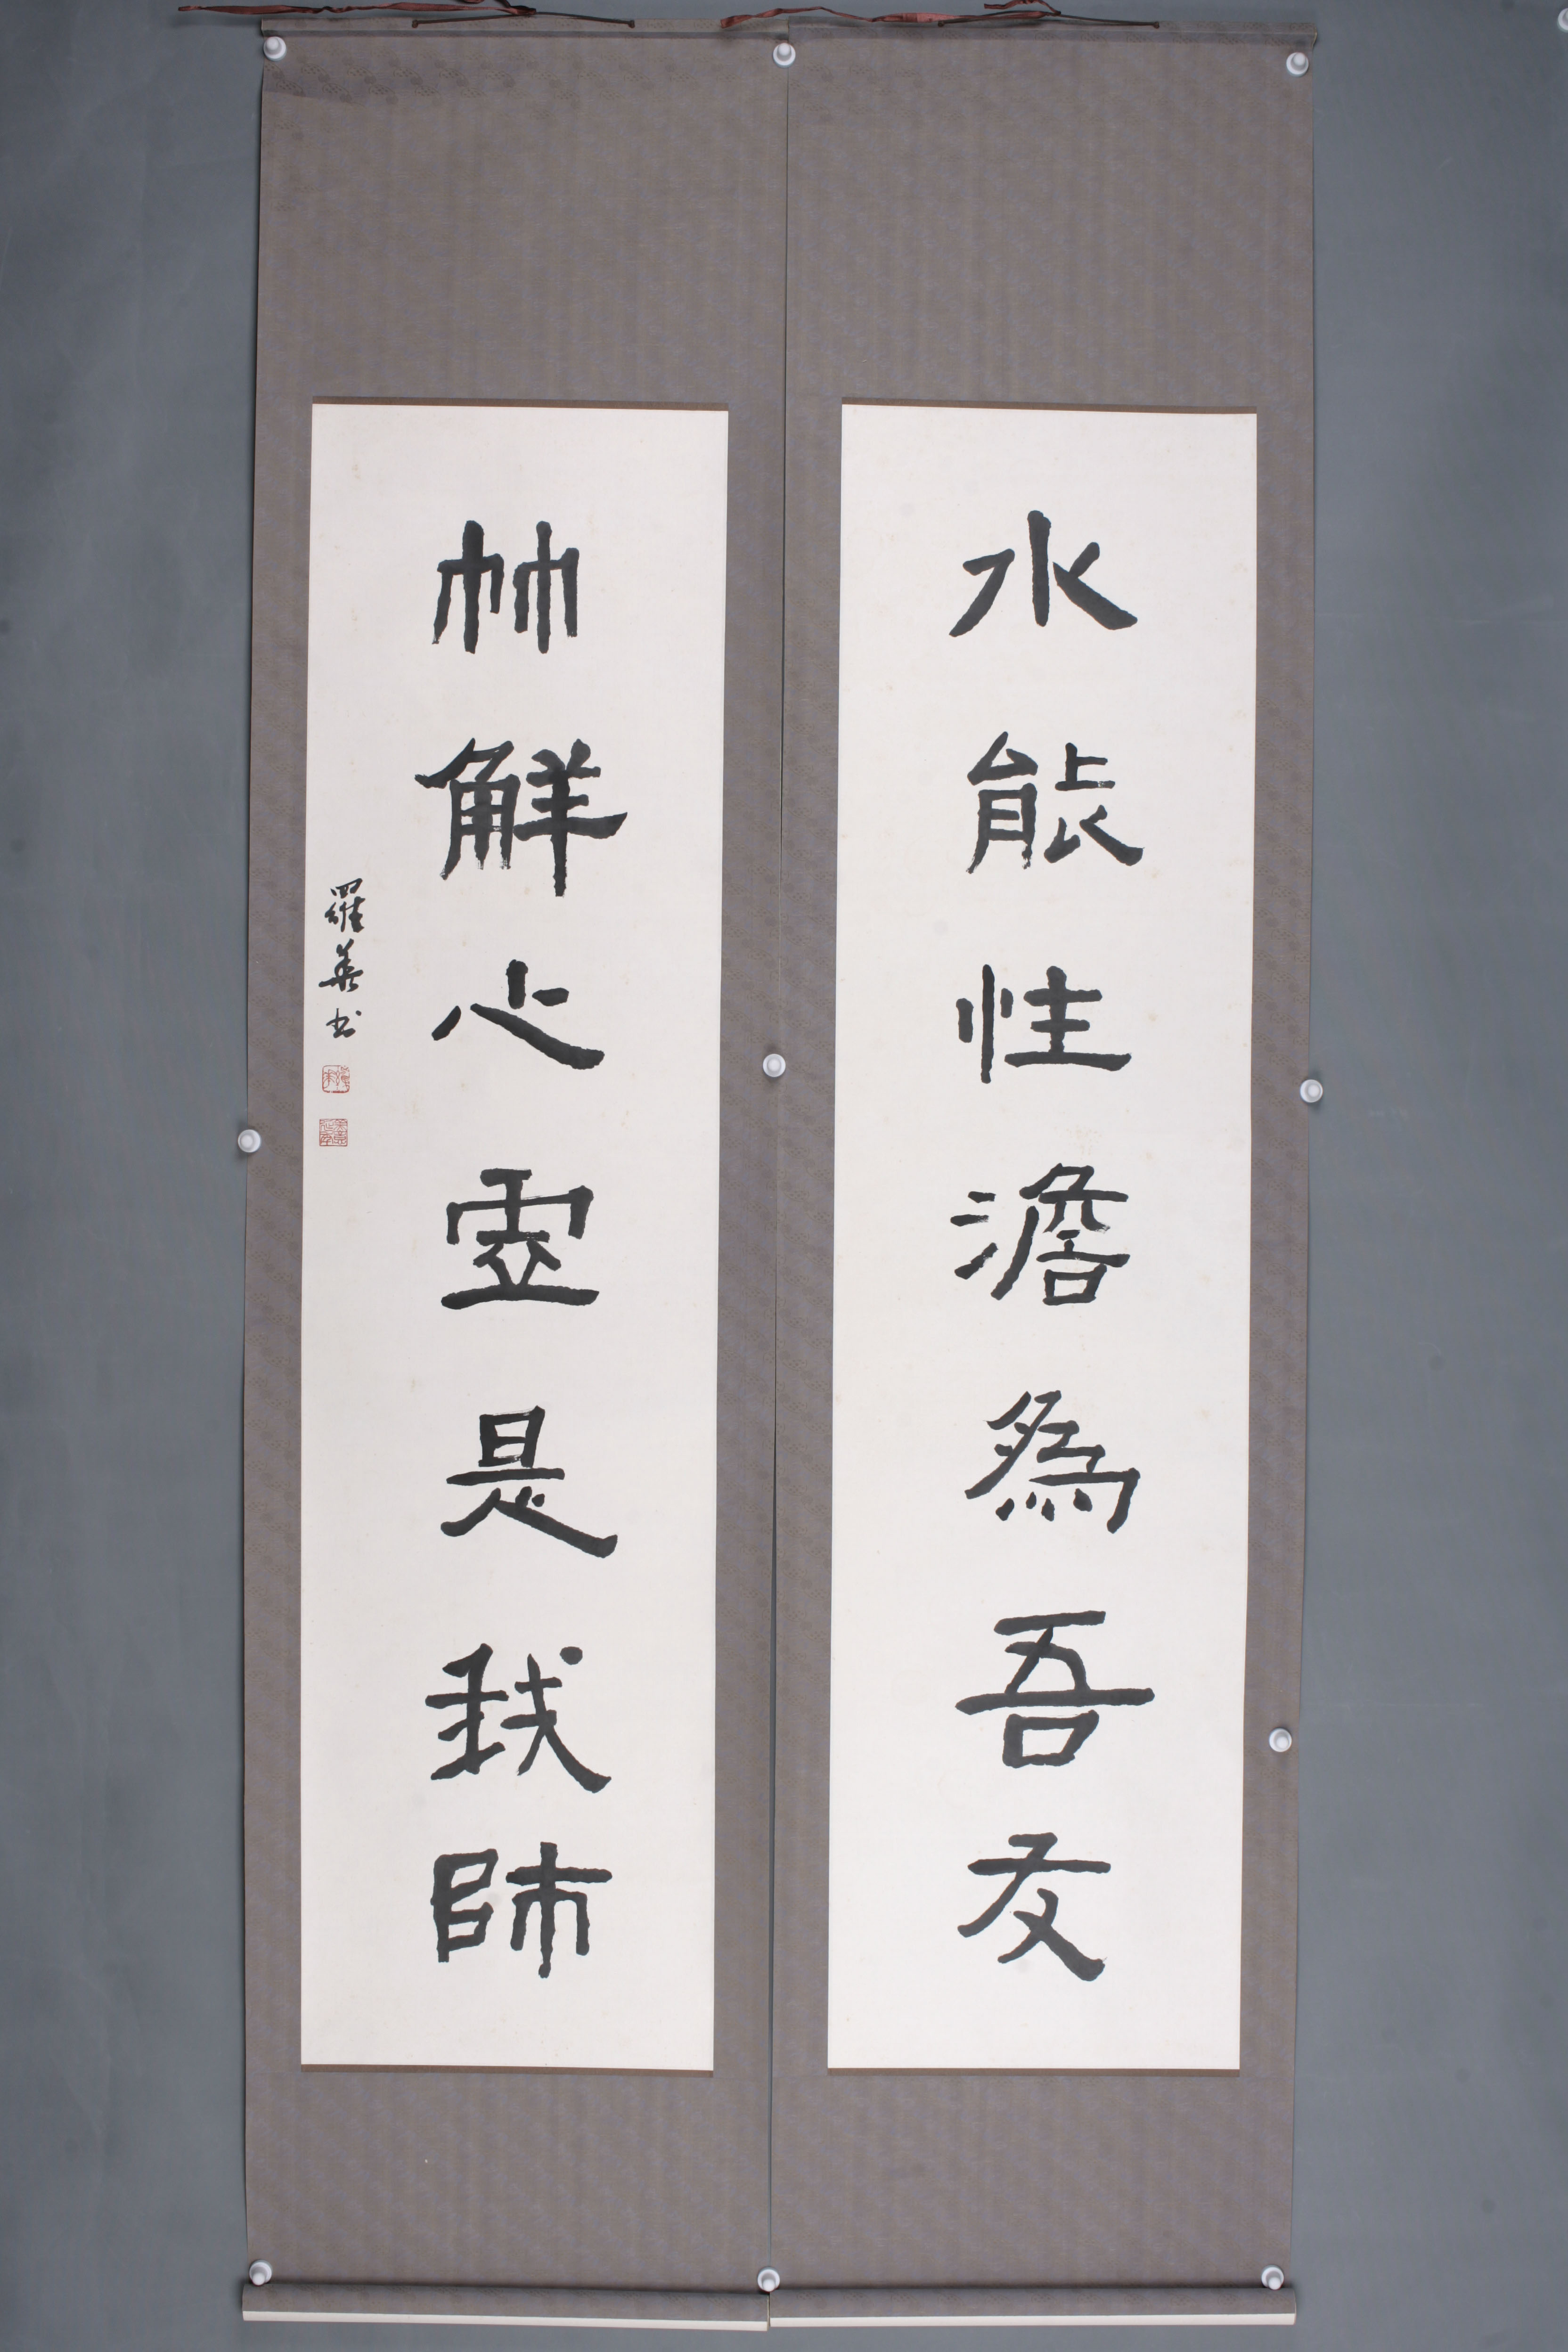 水能性澹為吾友
竹解心虛是我師
羅華书